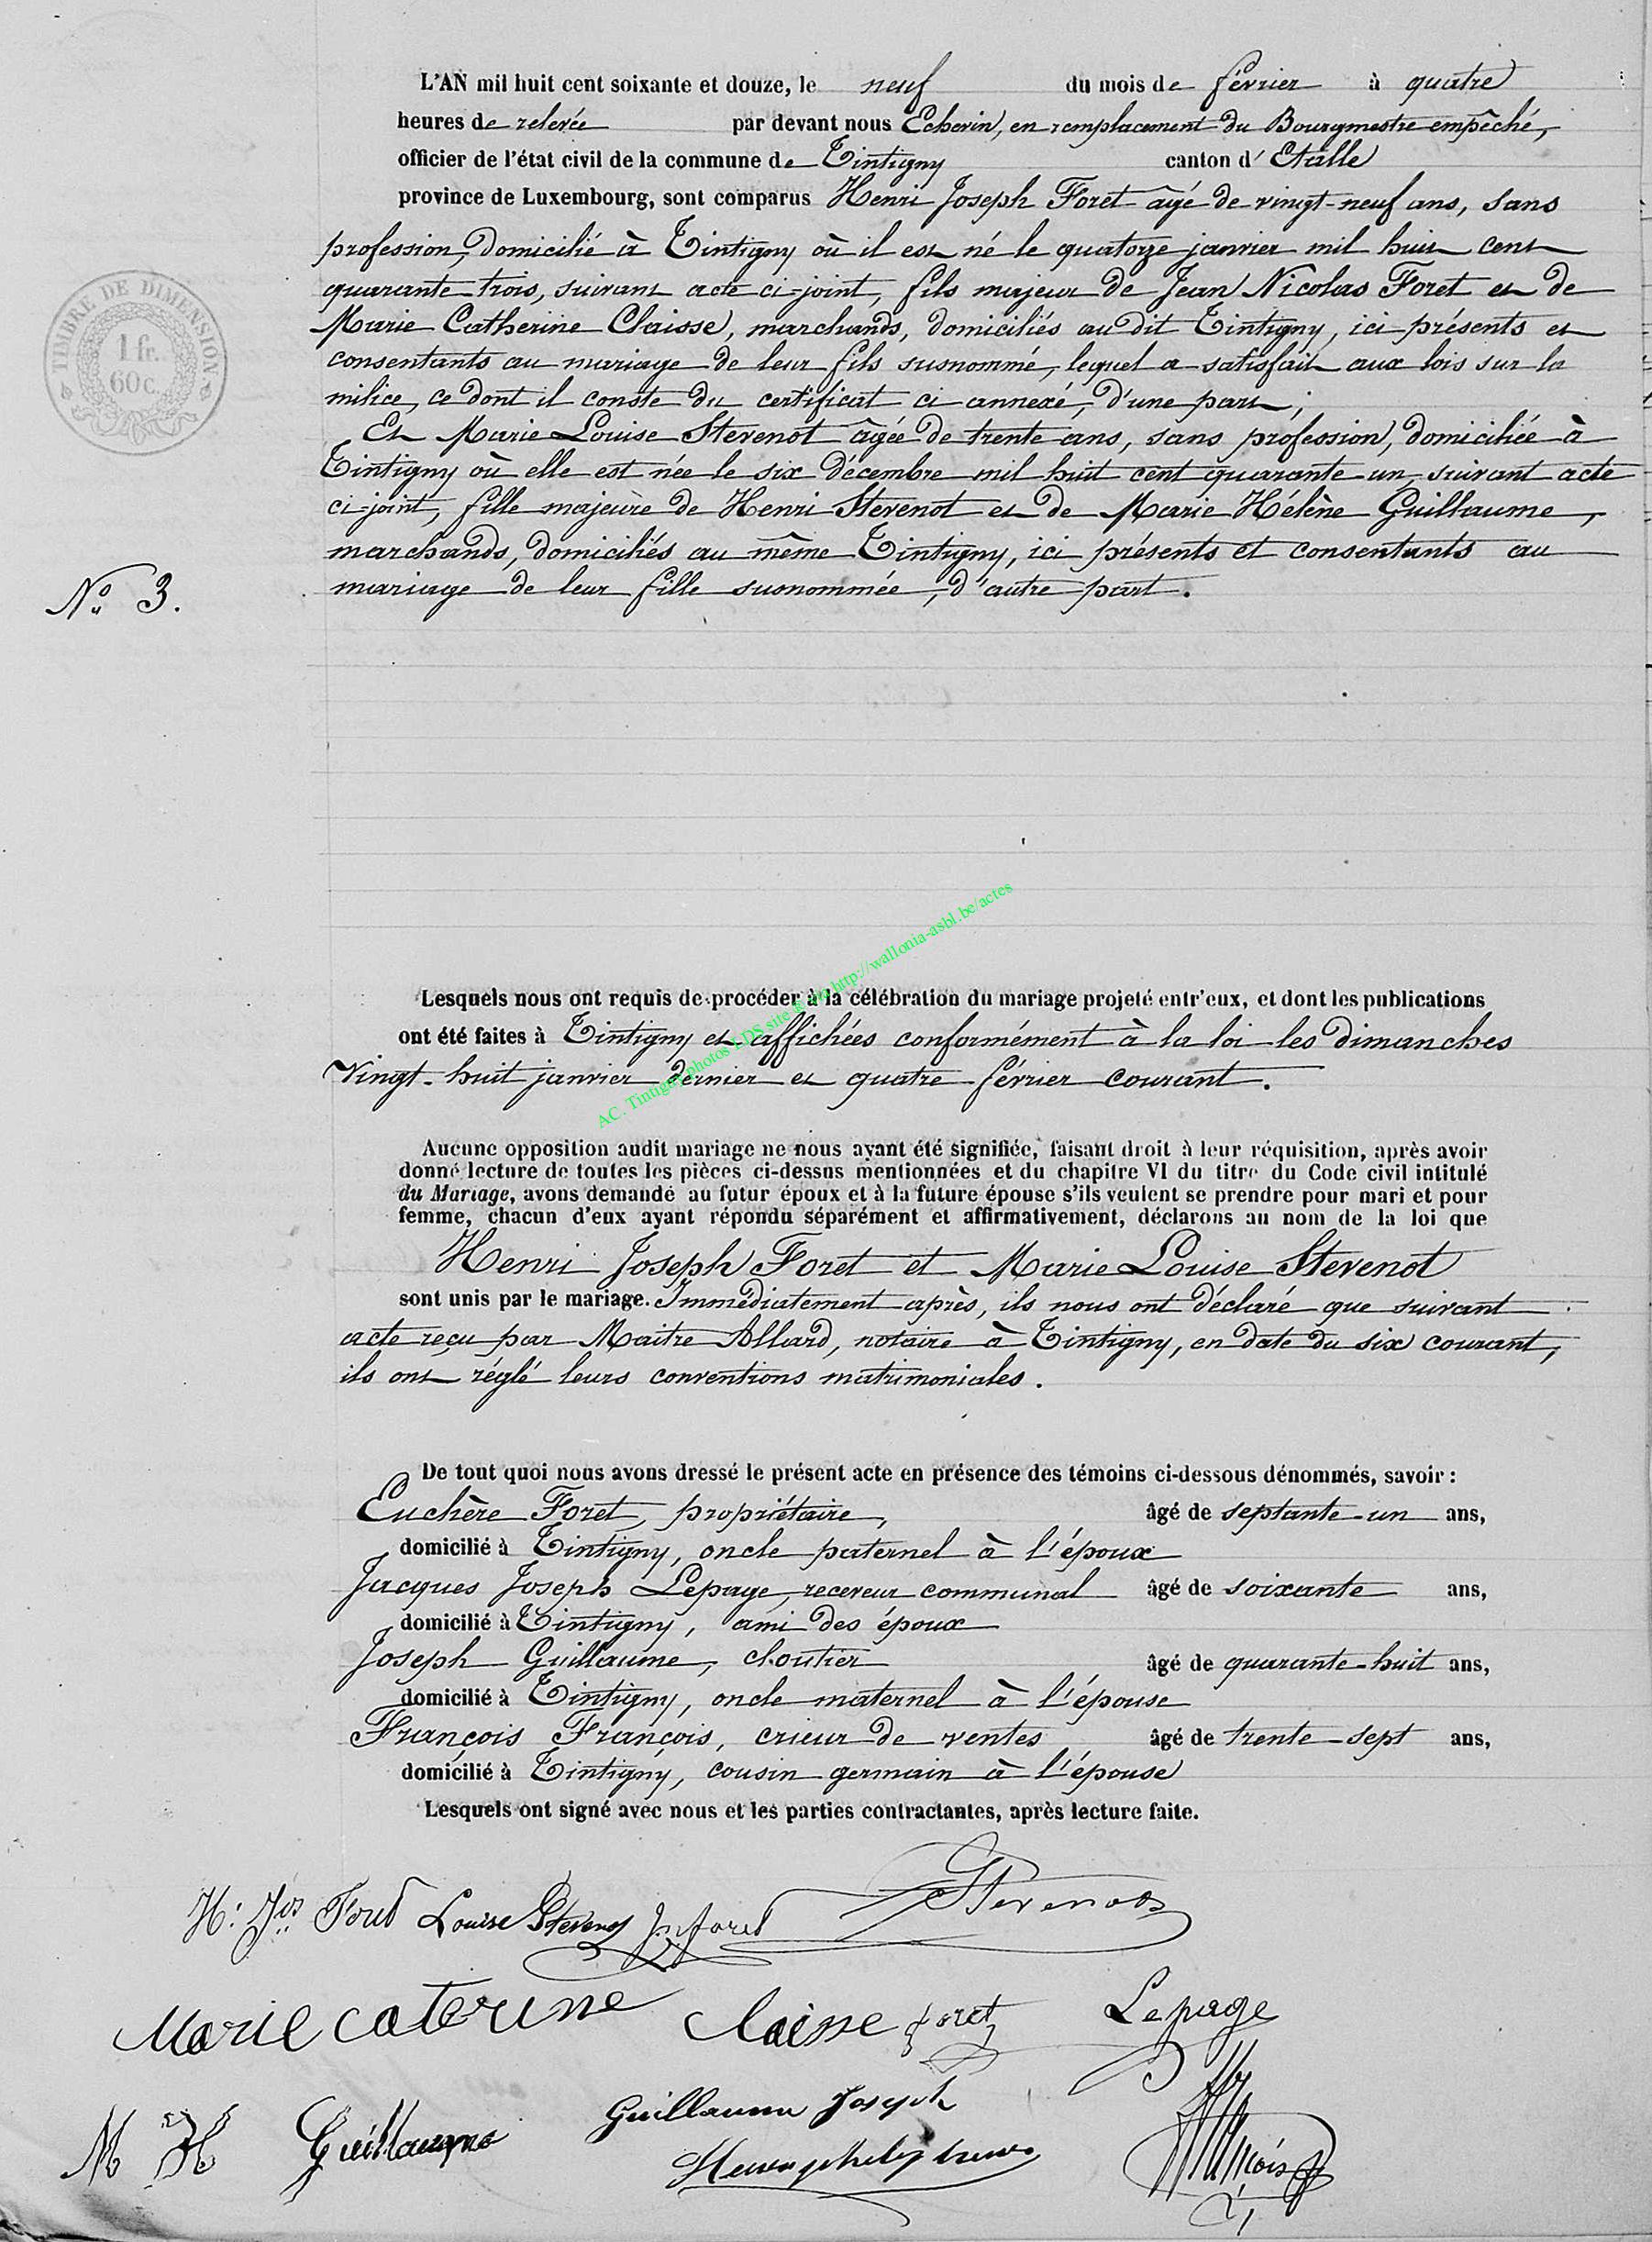 L'AN mil huit cent soixante et douze, le neuf du mois de février à quatre
heures de relevée par devant nous Echevin, en remplacement du Bourgmestre empêché,
officier de l'état civil de la commune de Tintigny canton d'Etalle
province de Luxembourg, sont comparus Henri Joseph Foret âgé de vingt-neuf ans, sans
profession, domicilié à Tintigny où il est né le quatorze janvier mil huit cent
quarante trois, suivant acte ci-joint, fils majeur de Jean Nicolas Foret et de
Marie Catherine Claisse, marchands, domiciliés au dit Tintigny, ici présents et
consentants au mariage de leur fils susnommé, lequel a satisfait aux lois sur la
milice, ce dont il conste du certificat ci annexé, d'une part;
Et Marie Louise Stevenot âgée de trente ans, sans profession, domiciliée à
Tintigny où elle est née le six décembre mil huit cent quarante-un, suivant acte
ci-joint, fille majeure de Henri Stevenot et de Marie Hélène Guillaume,
marchands, domiciliés au même Tintigny, ici présents et consentants au
mariage de leur fille susnommée, d'autre part.
TIMBRE DE DIMENSION
1 fr.
60 c.
No 3.
Lesquels nous ont requis de procéder à la célébration du mariage projeté entr'eux, et dont les publications
ont été faites à Tintigny et affichées conformément à la loi les dimanches
vingt-huit janvier dernier et quatre février courant.
AC. Tintigny photos LDS site http://wallonia-asbl.be/actes
Aucune opposition audit mariage ne nous ayant été signifiée, faisant droit à leur réquisition, après avoir
donné lecture de toutes les pièces ci-dessus mentionnées et du chapitre VI du titre du Code civil intitulé
du Mariage, avons demandé au futur époux et à la future épouse s'ils veulent se prendre pour mari et pour
femme, chacun d'eux ayant répondu séparément et affirmativement, déclarons au nom de la loi que
Henri Joseph Foret et Marie Louise Stevenot
sont unis par le mariage. Immédiatement après, ils nous ont déclaré que suivant
acte reçu par Maitre Allard, notaire à Tintigny, en date du six courant,
ils ont réglé leurs conventions matrimoniales.
De tout quoi nous avons dressé le présent acte en présence des témoins ci-dessous dénommés, savoir :
Euchère Foret, propriétaire, âgé de septante-un ans,
domicilié à Tintigny, oncle paternel à l'époux
Jacques Joseph Lepage, receveur communal âgé de soixante ans,
domicilié à Tintigny, ami des époux
Joseph Guillaume, cloutier âgé de quarante-huit ans,
domicilié à Tintigny, oncle maternel à l'épouse
François François, crieur de ventes âgé de trente-sept ans,
domicilié à Tintigny, cousin germain à l'épouse
Lesquels ont signé avec nous et les parties contractantes, après lecture faite.
H: Jos Foret Louise Stevenot Jn foret Stevenot
Marie caterine Claisse foret Lepage
M H Guillaume Guillaume Joseph